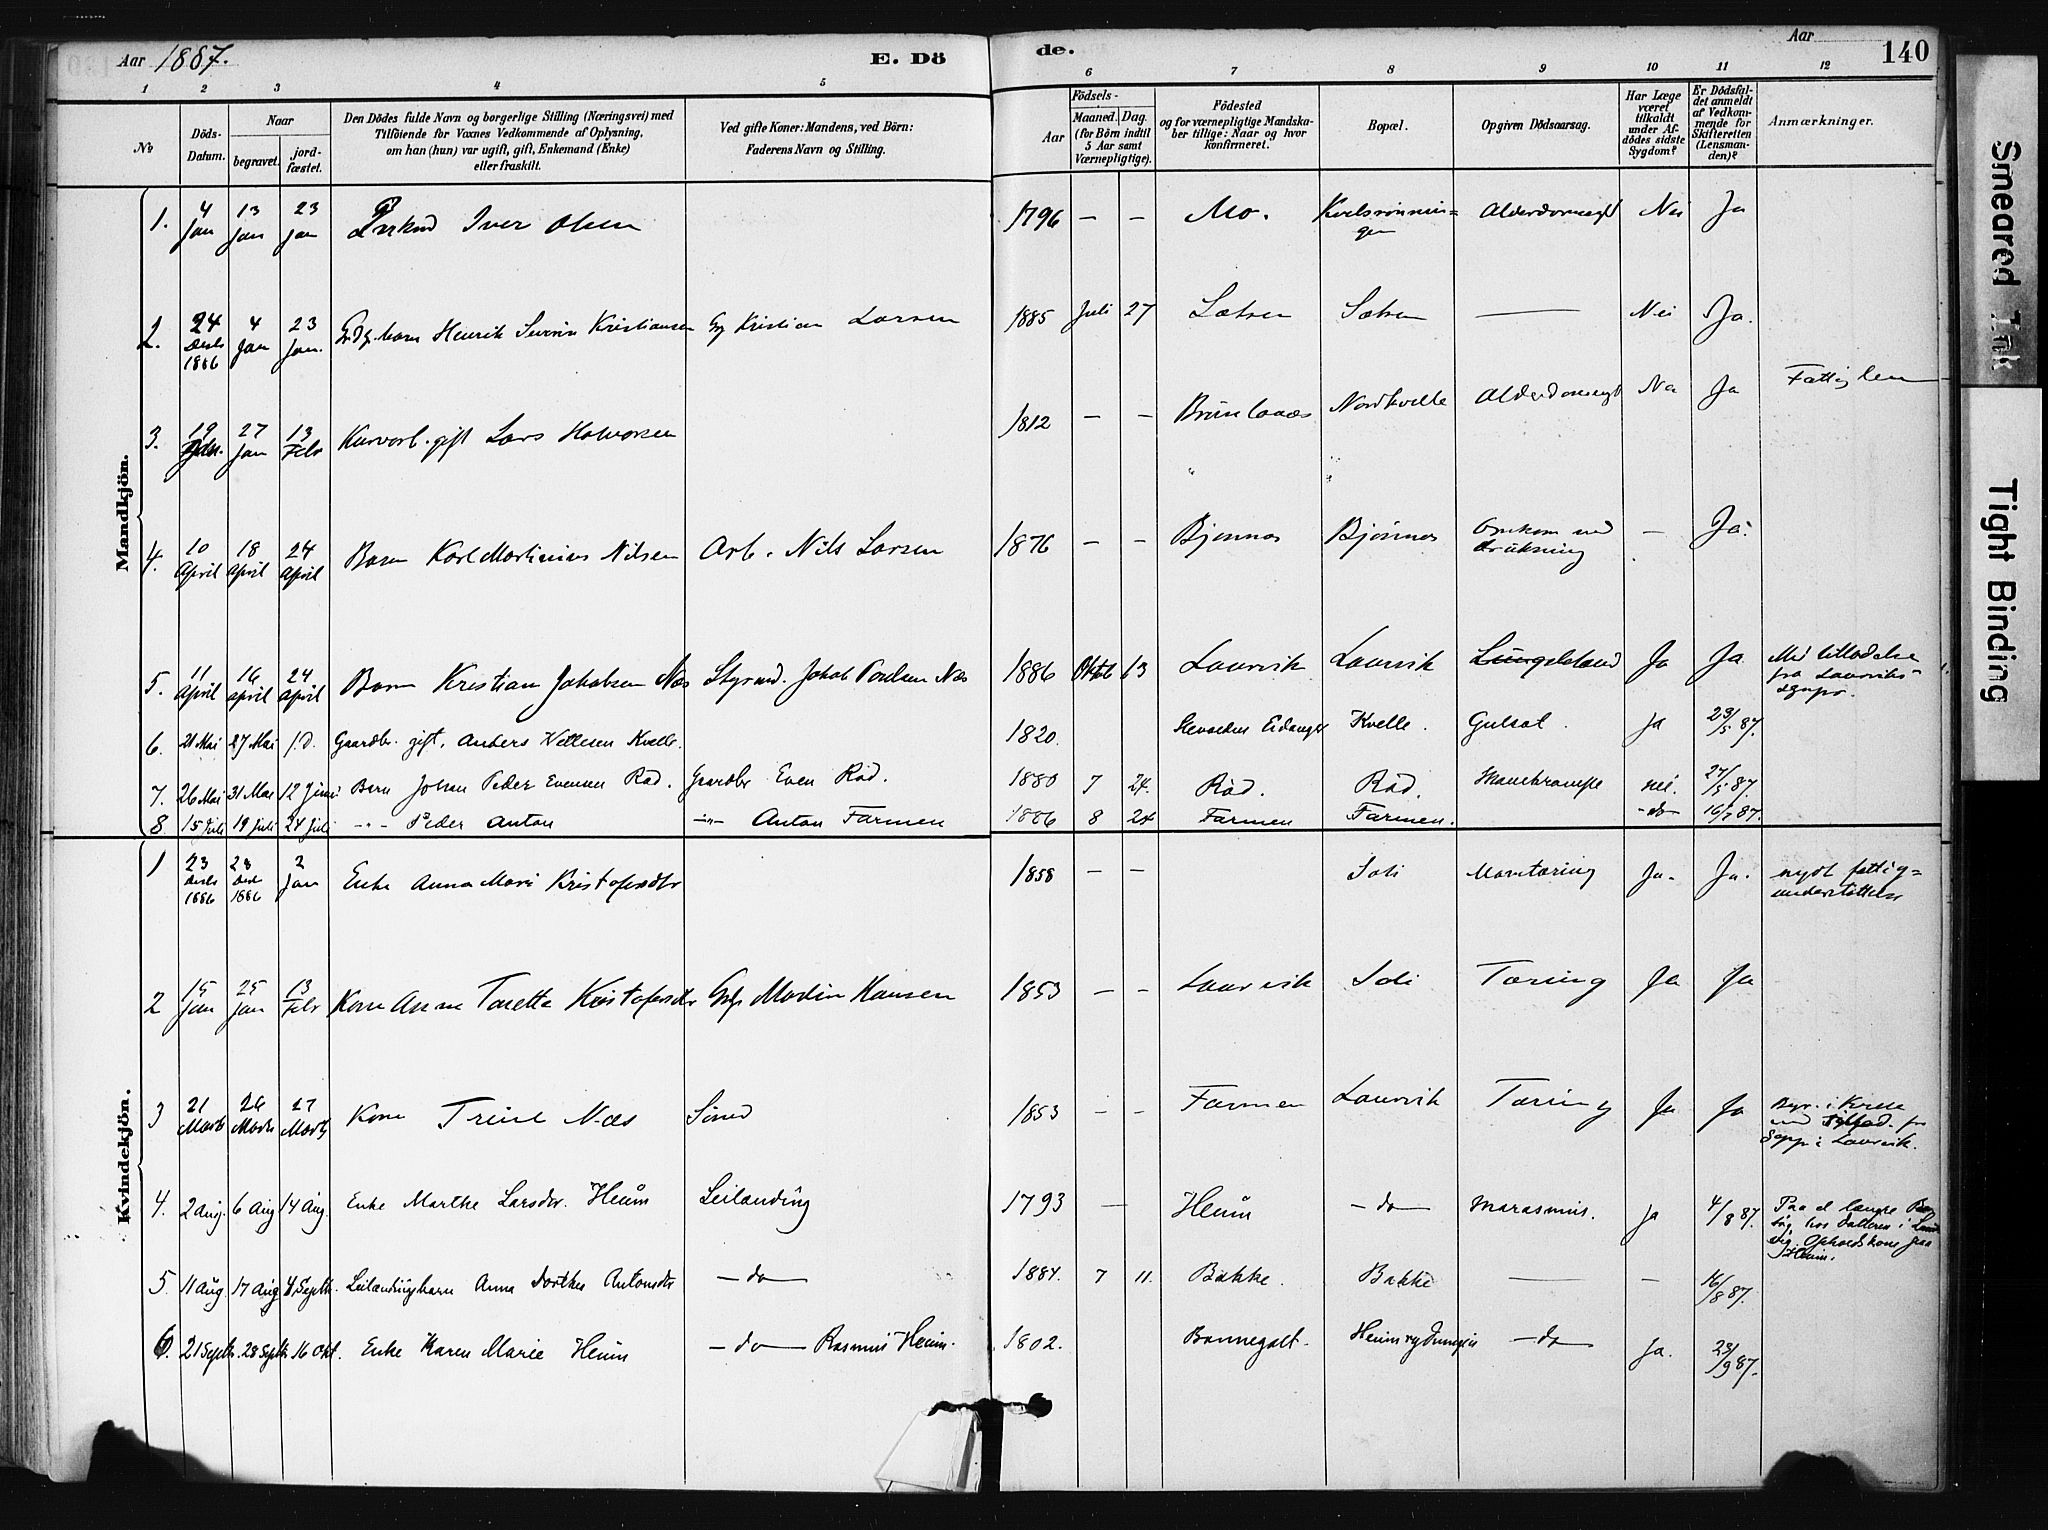 Aar 1887. E. Döde. Aar 140
1 2 3 4 5 6 7 8 9 10 11 12
No
Döds-Datum.
Naar
begravet.
jordfæstet.
Den Dödes fulde Navn og borgerlige Stilling (Næringsvei) med
Tilföiende for Voxnes Vedkommende af Oplysning,
om han (hun) var ugift, gift, Enkemand (Enke)
eller fraskilt.
Ved gifte Koner: Mandens, ved Börn:
Faderens Navn og Stilling.
Födsels-
Aar
Maaned. Dag.
(for Börn indtil
5 Aar samt
Værnepligtige).
Födested
og for værnepligtige Mandska-
ber tillige: Naar og hvor
konfirmeret.
Bopæl.
Opgiven Dödsaarsag.
Har Læge
været
tilkaldt
under Af-
dödes sidste
Sygdom?
Er Dödsfal-
det anmeldt
af Vedkom-
mende for
Skifteretten
(Lensman-
den)?
Anmærkninger.
Mandkjön.
1. 4 Jan 13 Jan 23 Jan Iver Olsen 1796 — — Mo. Nei Ja
2. 24 Decb 1886 4 Jan 23 Jan. Henrik Severin Kristiansen Kristian Larsen 1885 Juli 27 Sætren Sætren — Nei Ja.
3. 19 Jan. 27 Jan 13 Febr gift Lars Halvorsen 1812 — — Brunlanæs Nordkvelle Alderdomssvagh Nei Ja Fattiglem
4. 10 April 18 April 24 April Barn Karl Martinius Nilsen Arb. Nils Larsen 1876 — — Bjønnes Bjønnes Omkom ved drukning — Ja.
5. 11 April 16 April 24 April Barn Kristian Jakobsen Næs Styrmd. Jakob Poulsen Næs 1886 Oktob 13 Laurvik Laurvik Ja Ja Med tilladelse
fra Laurviks
sognpr.
6. 21 Mai 27 Mai J.D. Gaardbr. gift, Anders Kvelle. 1820. Eidanger Kvelle. Gulsot. Ja 23/5 87.
7. 26 Mai 31 Mai 12 Juni Barn Johan Peder Evensen Rød. Gaardbr Even Rød. 1880 7 24. Rød. Rød. nei. 27/5 87.
8. 15 Juli 19 Juli 24 Juli -"- Peder Anton -"- Anton Farmen 1886 8 24 Farmen Farmen. - do 16/7 87.
Kvindekjön.
1 23 Decb 1886 28 Decb 1886 2 Jan Enke Anna Mari Kristofersdtr 1858 — — Soli Ja. Ja. nydt fattig=
understøttelse
2 15 Jan 25 Jan 13 Febr Kone Anne Torette Kristofersdtr Martin Hansen 1853 — — Laurvik Soli Tæring Ja Ja
3 21 Marts 26 Marts 27 Marts Kone Trine Næs 1853 — — Farmen Laurvik Tæring Ja Ja
4. 2 Aug. 6 Aug 14 Aug. Enke Marthe Larsdtr. Heum Leilænding 1793 — Heum - do - Marasmus. Ja 4/8 87.
5. 11 Aug. 17 Aug 4 Septb. Leilændingbarn Anna Dorthea Antonsdtr - do - 1884. 7 11. Bakke. Bakke — — 16/8 87.
6. 21 Septb. 28 Septb. 16 Okt. Enke Karen Marie Heum - do - Rasmus Heum. 1802. - do - Ja. 23/9 87.
Smeared Ink
Tight Binding